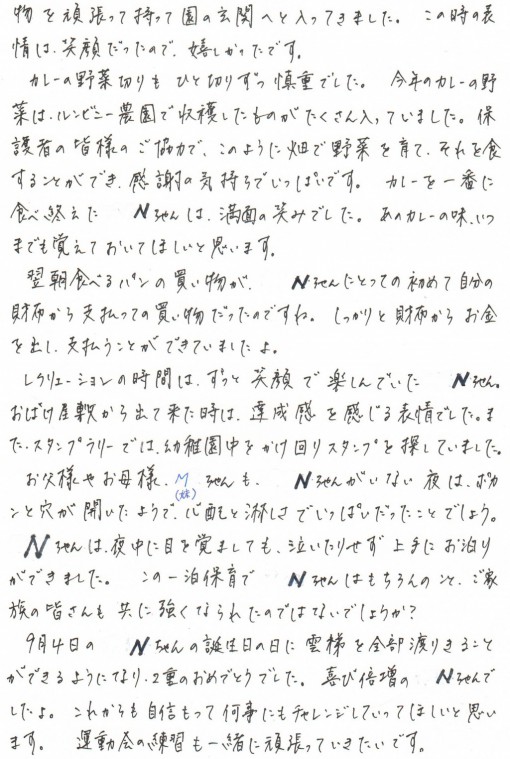 物を頑張って持って園の玄関へと入ってきました。 この時の表
情は、笑顔だったので、嬉しかったです。
カレーの野菜切りも ひと切りずつ慎重でした。 今年のカレーの野
菜は、ルンビニー農園で収穫したものがたくさん入っていました。保
護者の皆様のご協力で、このように畑で野菜を育て、それを食
することができ、感謝の気持ちでいっぱいです。 カレーを一番に
食べ終えた Nちゃんは、満面の笑みでした。あのカレーの味、いつ
までも覚えておいてほしいと思います。
翌朝食べるパンの買い物が、 Nちゃんにとっての初めて自分の
財布から支払っての買い物だったのですね。 しっかりと財布からお金
を出し、支払うことができていましたよ。
レクリエーションの時間は、ずっと笑顔で楽しんでいた Nちゃん。
おばけ屋敷から出て来た時は、達成感を感じる表情でした。ま
た、スタンプラリーでは、幼稚園中をかけ回りスタンプを探していました。
お父様やお母様、Mちゃんも、 Nちゃんがいない夜は、ポカ
(妹)
ンと穴が開いたようで、心配と淋しさでいっぱいだったことでしょう。
Nちゃんは、夜中に目を覚ましても、泣いたりせず上手にお泊り
ができました。 この一泊保育で Nちゃんはもちろんのこと、ご家
族の皆さんも共に強くなられたのではないでしょうか?
9月4日の Nちゃんの誕生日の日に雲梯を全部渡りきること
ができるようになり、2重のおめでとうでした。喜び倍増の Nちゃんで
したよ。これからも自信もって何事にもチャレンジしていってほしいと思い
ます。 運動会の練習も一緒に頑張っていきたいです。